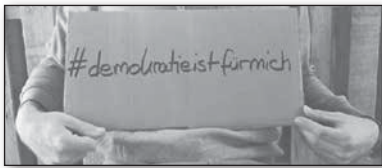 #demokratieistfürmich